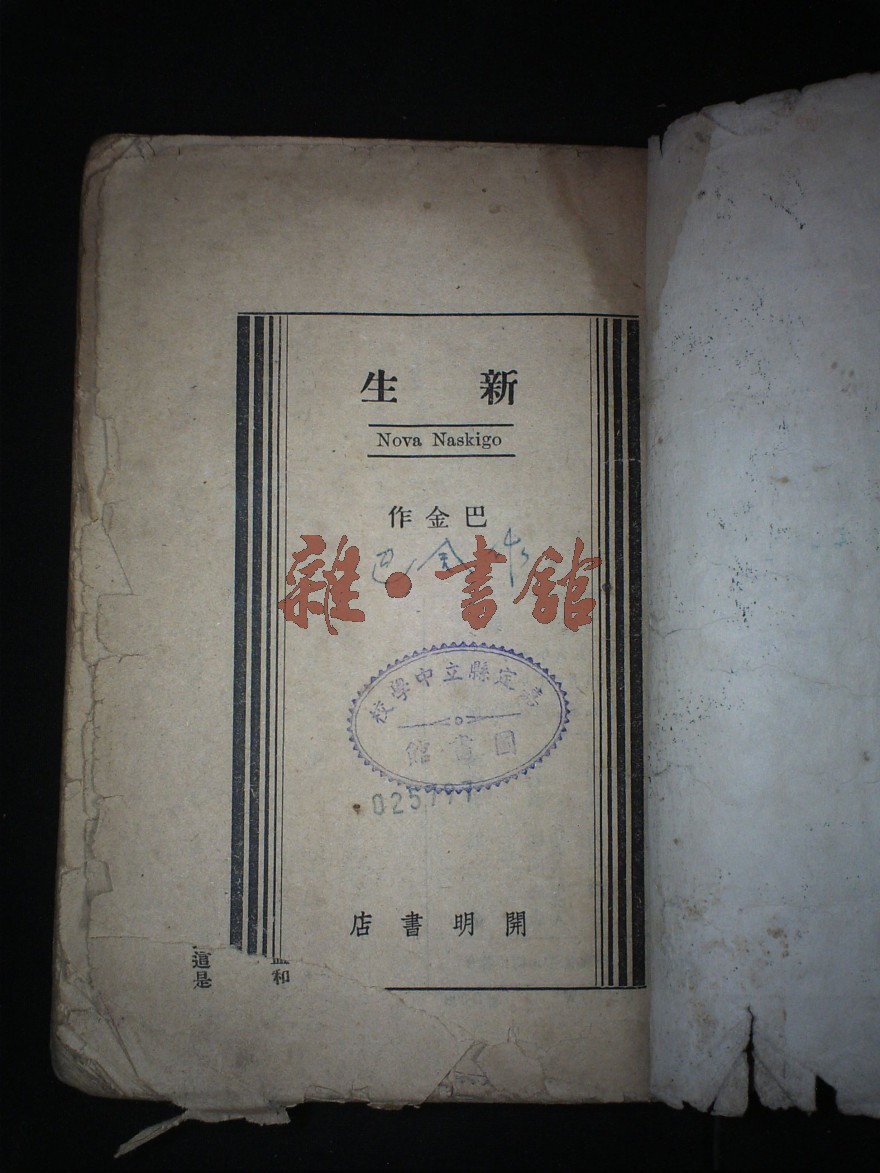 新生
Nova Naskigo
巴金作
巴金作
雜·書館
定縣立中學校
圖書館
開明書店
和
這是